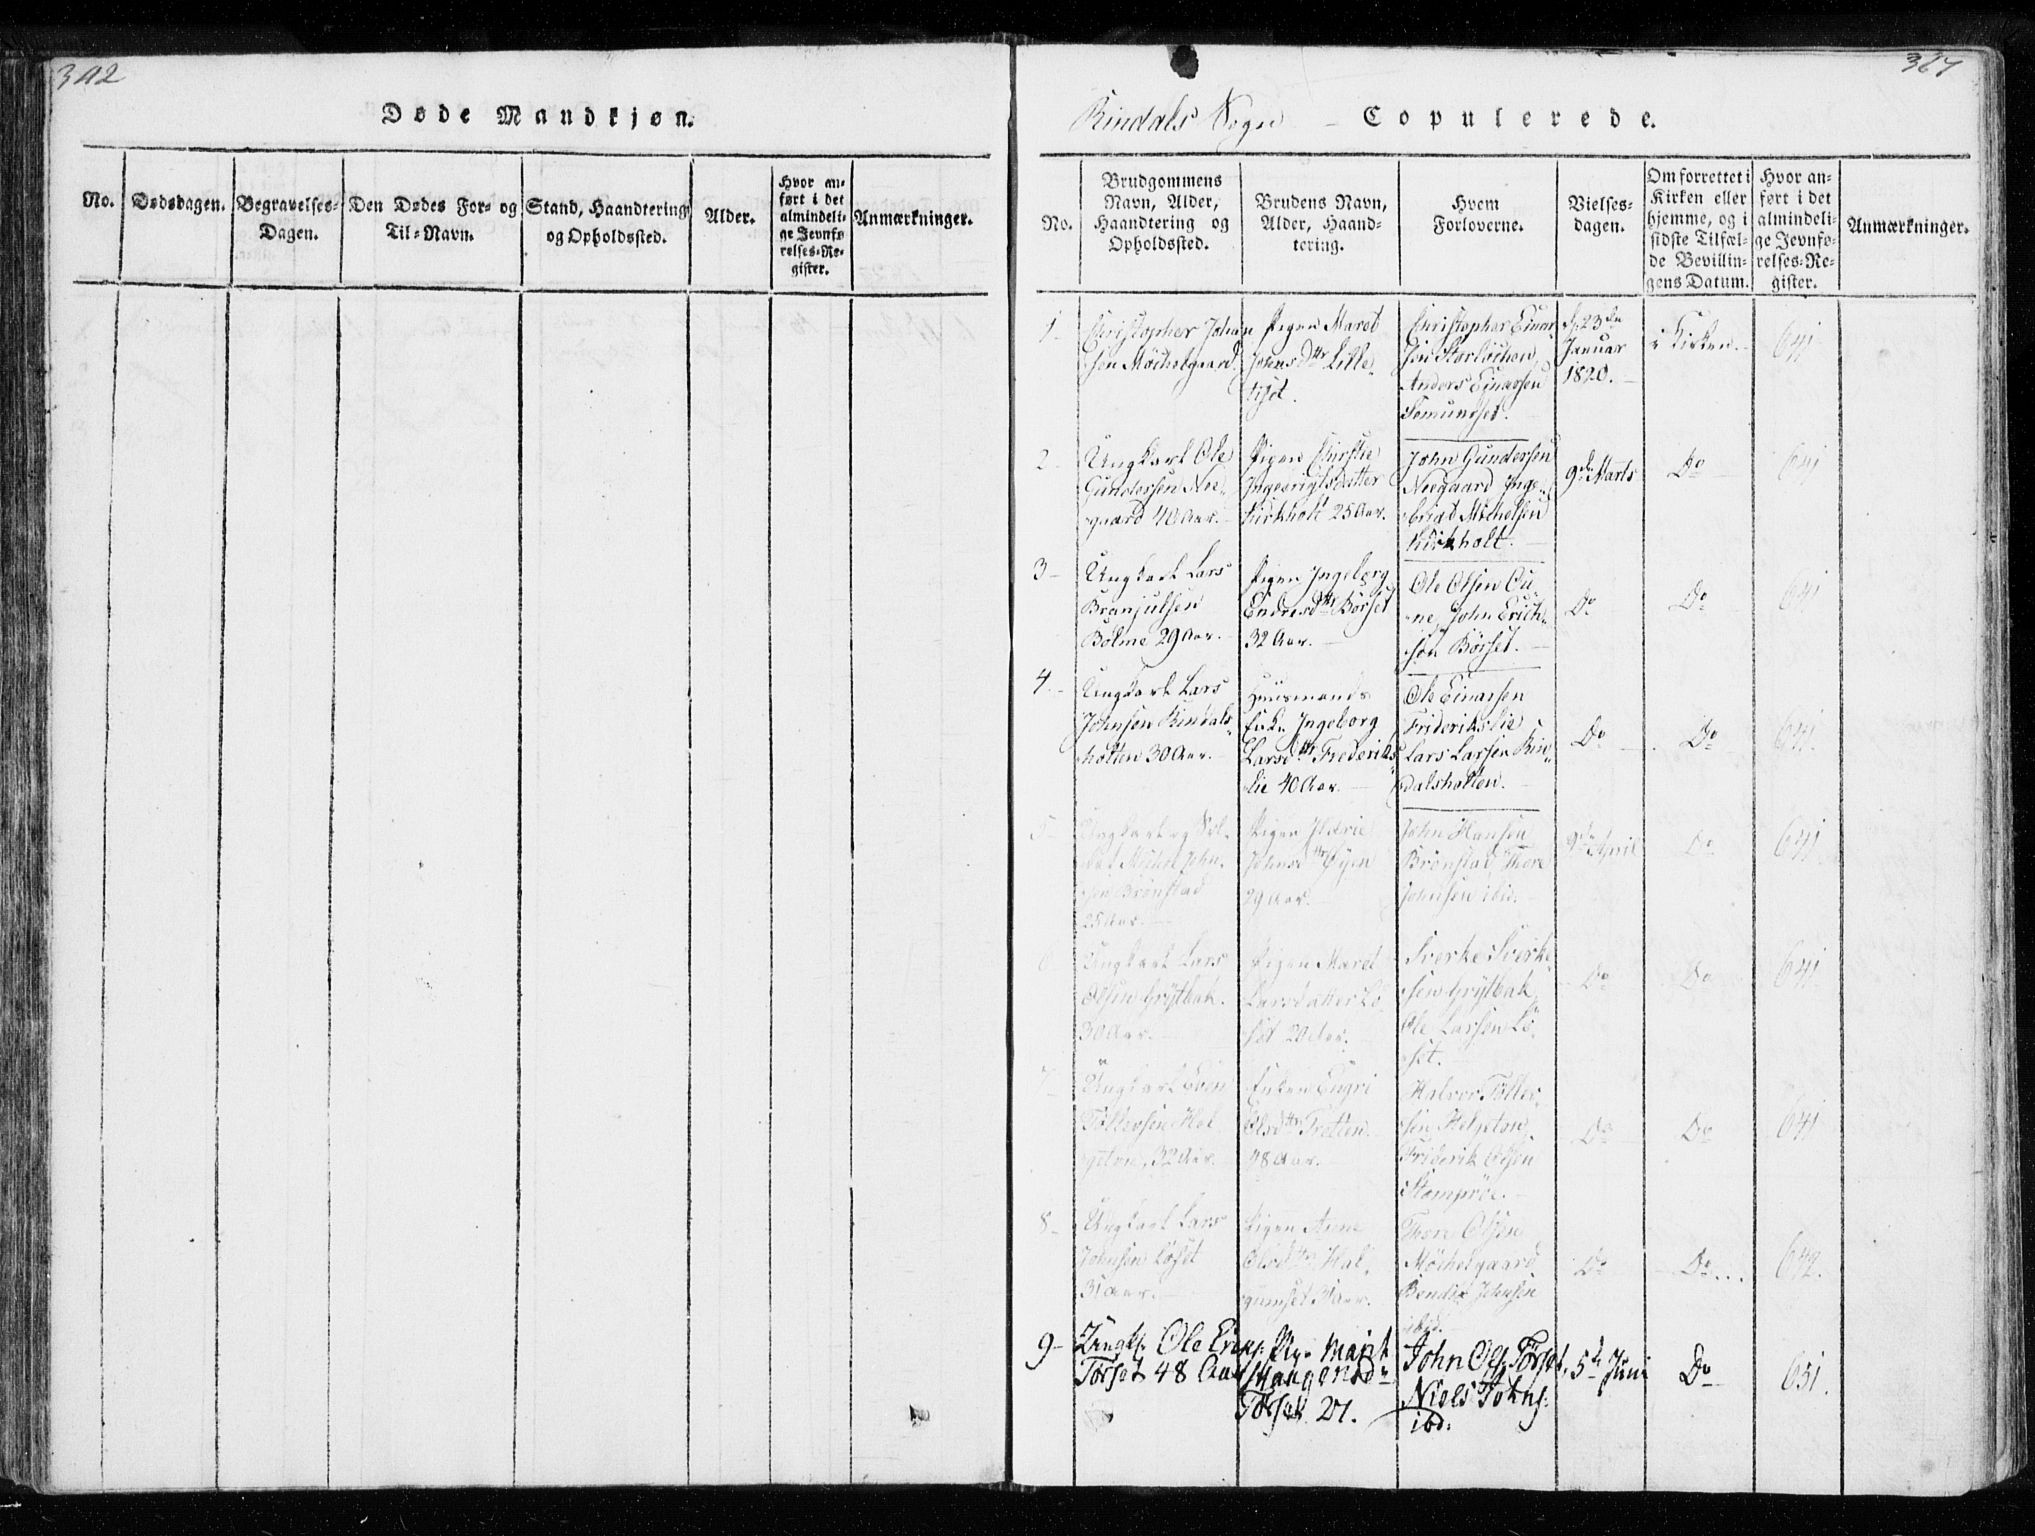 302
Døde Mandkjøn.
No.
Dødsdagen.
Begravelses-
Dagen.
Den Dødes For- og
Til-Navn.
Stand, Haandtering
og Opholdssted.
Alder.
Hvor an-
ført i det
almindeli-
ge Jevnfø
relses-Re-
gister.
Anmærkninger.
327
Rindals Sogn - Copulerede.
No.
Brudgommens
Navn, Alder,
Haandtering og
Opholdssted.
Brudens Navn,
Alder, Haand-
tering.
Hvem
Forloverne.
Vielses-
dagen.
Om forrettet i
Kirken eller
hjemme, og i
sidste Tilfæl-
de Bevillin-
gens Datum.
Hvor an-
ført i det
almindeli-
ge Jevnfø-
relses-Re-
gister.
Anmærkninger.
1
Christopher Johan
sen Möchelgaard.
Pigen Maret
Johnsdtr Lille-
Christopher Einar
sen Storløchen,
Anders Einarsen
Romundset.
d. 23de
Januar
1820.
i Kirken.
641
2
Ungkarl Ole
Gundersen Nee-
gaard 40 Aar.
Pigen Chirstie
Ingebrigtsdatter
Kirkholt 25 Aar.
John Gundersen
Neegaard, Inge-
brigt Michelsen
Kirkholt.
9de Marts
Do
641
3
Ungkarl Lars
Brønjulsen
Bolme 29 Aar.
Pigen Ingeborg
Endresdtr Börset
32 Aar.
Ole Olsen Ou-
ne, John Erich-
sen Börset.
Do
Do
641
4
Ungkarl Lars
Johnsen Rindals-
holten 30 Aar.
Huusmands
Enke Ingeborg
Larsdtr Frederiks
lie 40 Aar.
Ole Einarsen
Friderikslie
Lars Larsen Rin-
dalsholten.
Do
Do
641.
5
Ungkarl og Sol-
dat Michel John-
sen Brönstad
25 Aar.
Pigen Ildrie
Johnsdtr Öyen
29 Aar.
John Hansen
Brönstad, Thore
Johnsen ibid.
9de April
Do
641
6
Ungkarl Lars
Olsen Grytbak.
30 Aar.
Pigen Maret
Larsdatter Lö-
set 20 Aar.
Sverke Sverke-
sen Grytbak,
Ole Larsen Lö-
set.
Do
Do
641
7
Ungkarl Even
Tollevsen Hel-
geton, 32 Aar.
Enken Engri
Olsdtr Tretten
48 Aar.
Halvor Tollev-
sen Helgeton,
Friderik Olsen
Stomprøe.
Do
Do
641
8
Ungkarl Lars
Johnsen Löset
31 Aar.
Pigen Anne
Olsdtr Hal-
gumset 31 Aar.
Thore Olsen
Möchelgaard
Bendix Johnsen
ibid.
Do
Do
642.
9
Ungk. Ole Eriks.
Torset 48 Aar
Pige Marit
Mangensdr
Torset 27.
John Ols: Törset,
Niels Johns:
ibd:
5te Juni
Do
651.